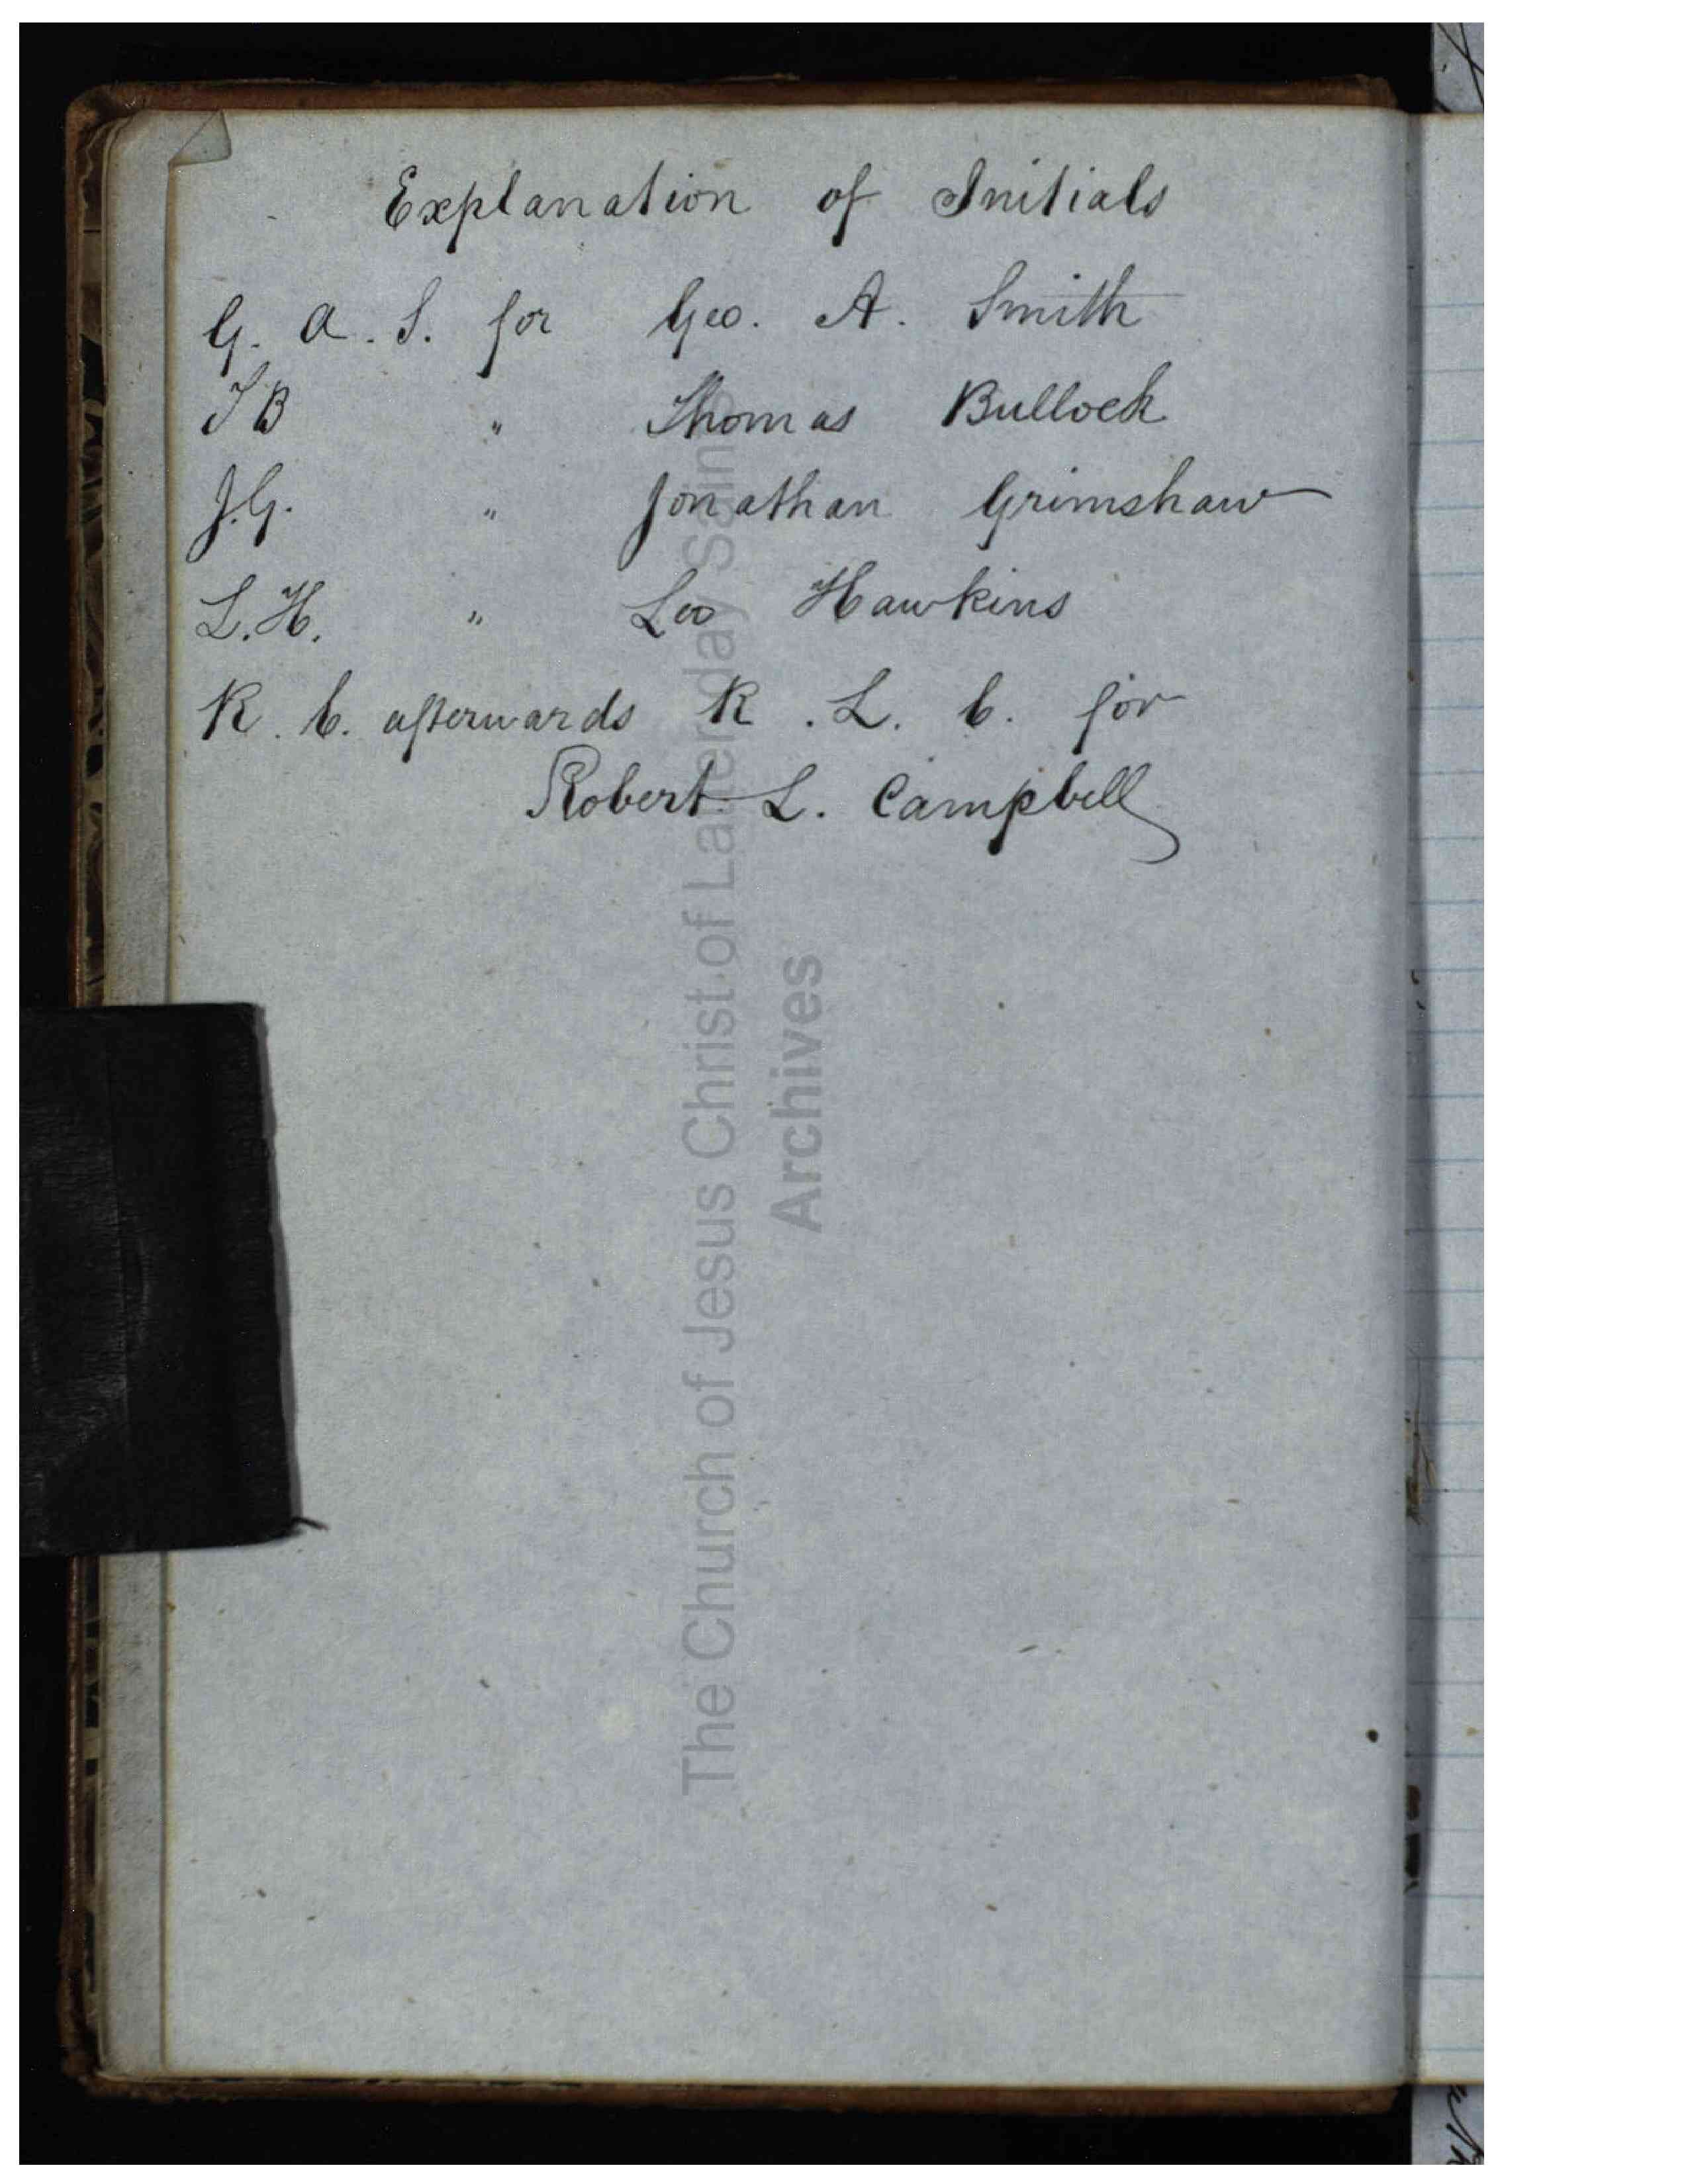 Explanation of Initials
G. A. S. for Geo. A. Smith
TB " Thomas Bullock
J.G. " Jonathan Grimshaw
L.H. " Leo Hawkins
R. C. afterwards R. L. C. for
Robert L. Campbell
The Church of Jesus Christ of Latter-day Saints
Archives